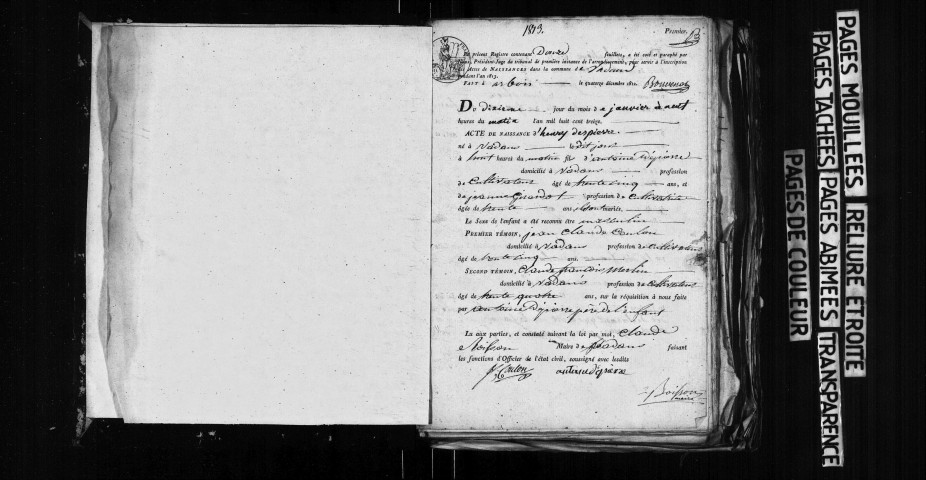 1813.
Premier.
Le présent Registre contenant Douze feuillets, a été coté et paraphé par
Nous, Président-Juge du tribunal de première instance de l'arrondissement, pour servir à l'inscription
des Actes de NAISSANCES dans la commune de Vadans
pendant l'an 1813.
FAIT à arbois le quatorze décembre 1812.
DU dixième jour du mois de janvier à neuf
heures du matin l'an mil huit cent treize.
ACTE DE NAISSANCE d'henry despierre
né à Vadans
à huit heures du matin fils d'antoine Dépierre
domicilié à Vadans profession
de Cultivateur âgé de trente cinq ans, et
de jeanne profession de Cultivatrice
âgée de trente ans, mariés.
Le Sexe de l'enfant a été reconnu être masculin
PREMIER TÉMOIN, jean Claude Coulon
domicilié à Vadans profession de Cultivateur
âgé de trente cinq ans.
SECOND TÉMOIN, Claude françois
domicilié à Vadans profession de Cultivateur
âgé de trente quatre ans, sur la réquisition à nous faite
par antoine Dépierre père de l'enfant
Lu aux parties, et constaté suivant la loi par moi, Claude
Boisson Maire de Vadans faisant
les fonctions d'Officier de l'état civil, soussigné avec lesdits
Coulon antoine dépierre
Boisson
maire
PAGES MOUILLEES RELIURE ETROITE
PAGES TACHEES PAGES ABIMEES TRANSPARENCE
PAGES DE COULEUR